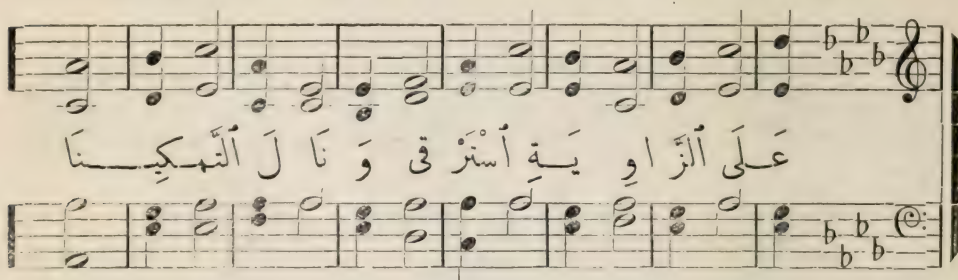 عَـلَى ٱلزَّ اوِ يَـةِ ٱسْتَرْ قى وَ نَا لَ ٱلتَّمـكِيـــنَا